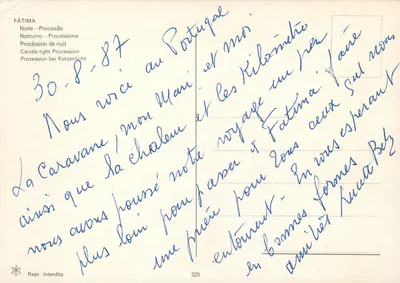 FÁTIMA
Noite – Procissão
Notturno – Processione
Procéssion de nuit
Candle-light Procession
Prozession bei Kerzenlicht
30-8-87
Nous voici au Portugal
La Caravane, mon Mari et moi
ainsi que la chaleur et les Kilomètres
nous avons poussé notre voyage un peu
plus loin pour passer à Fatima faire
une prière pour tous ceux qui nous
entourent - En vous espérant
en bonnes formes
amitiés
Repr. interdita
325